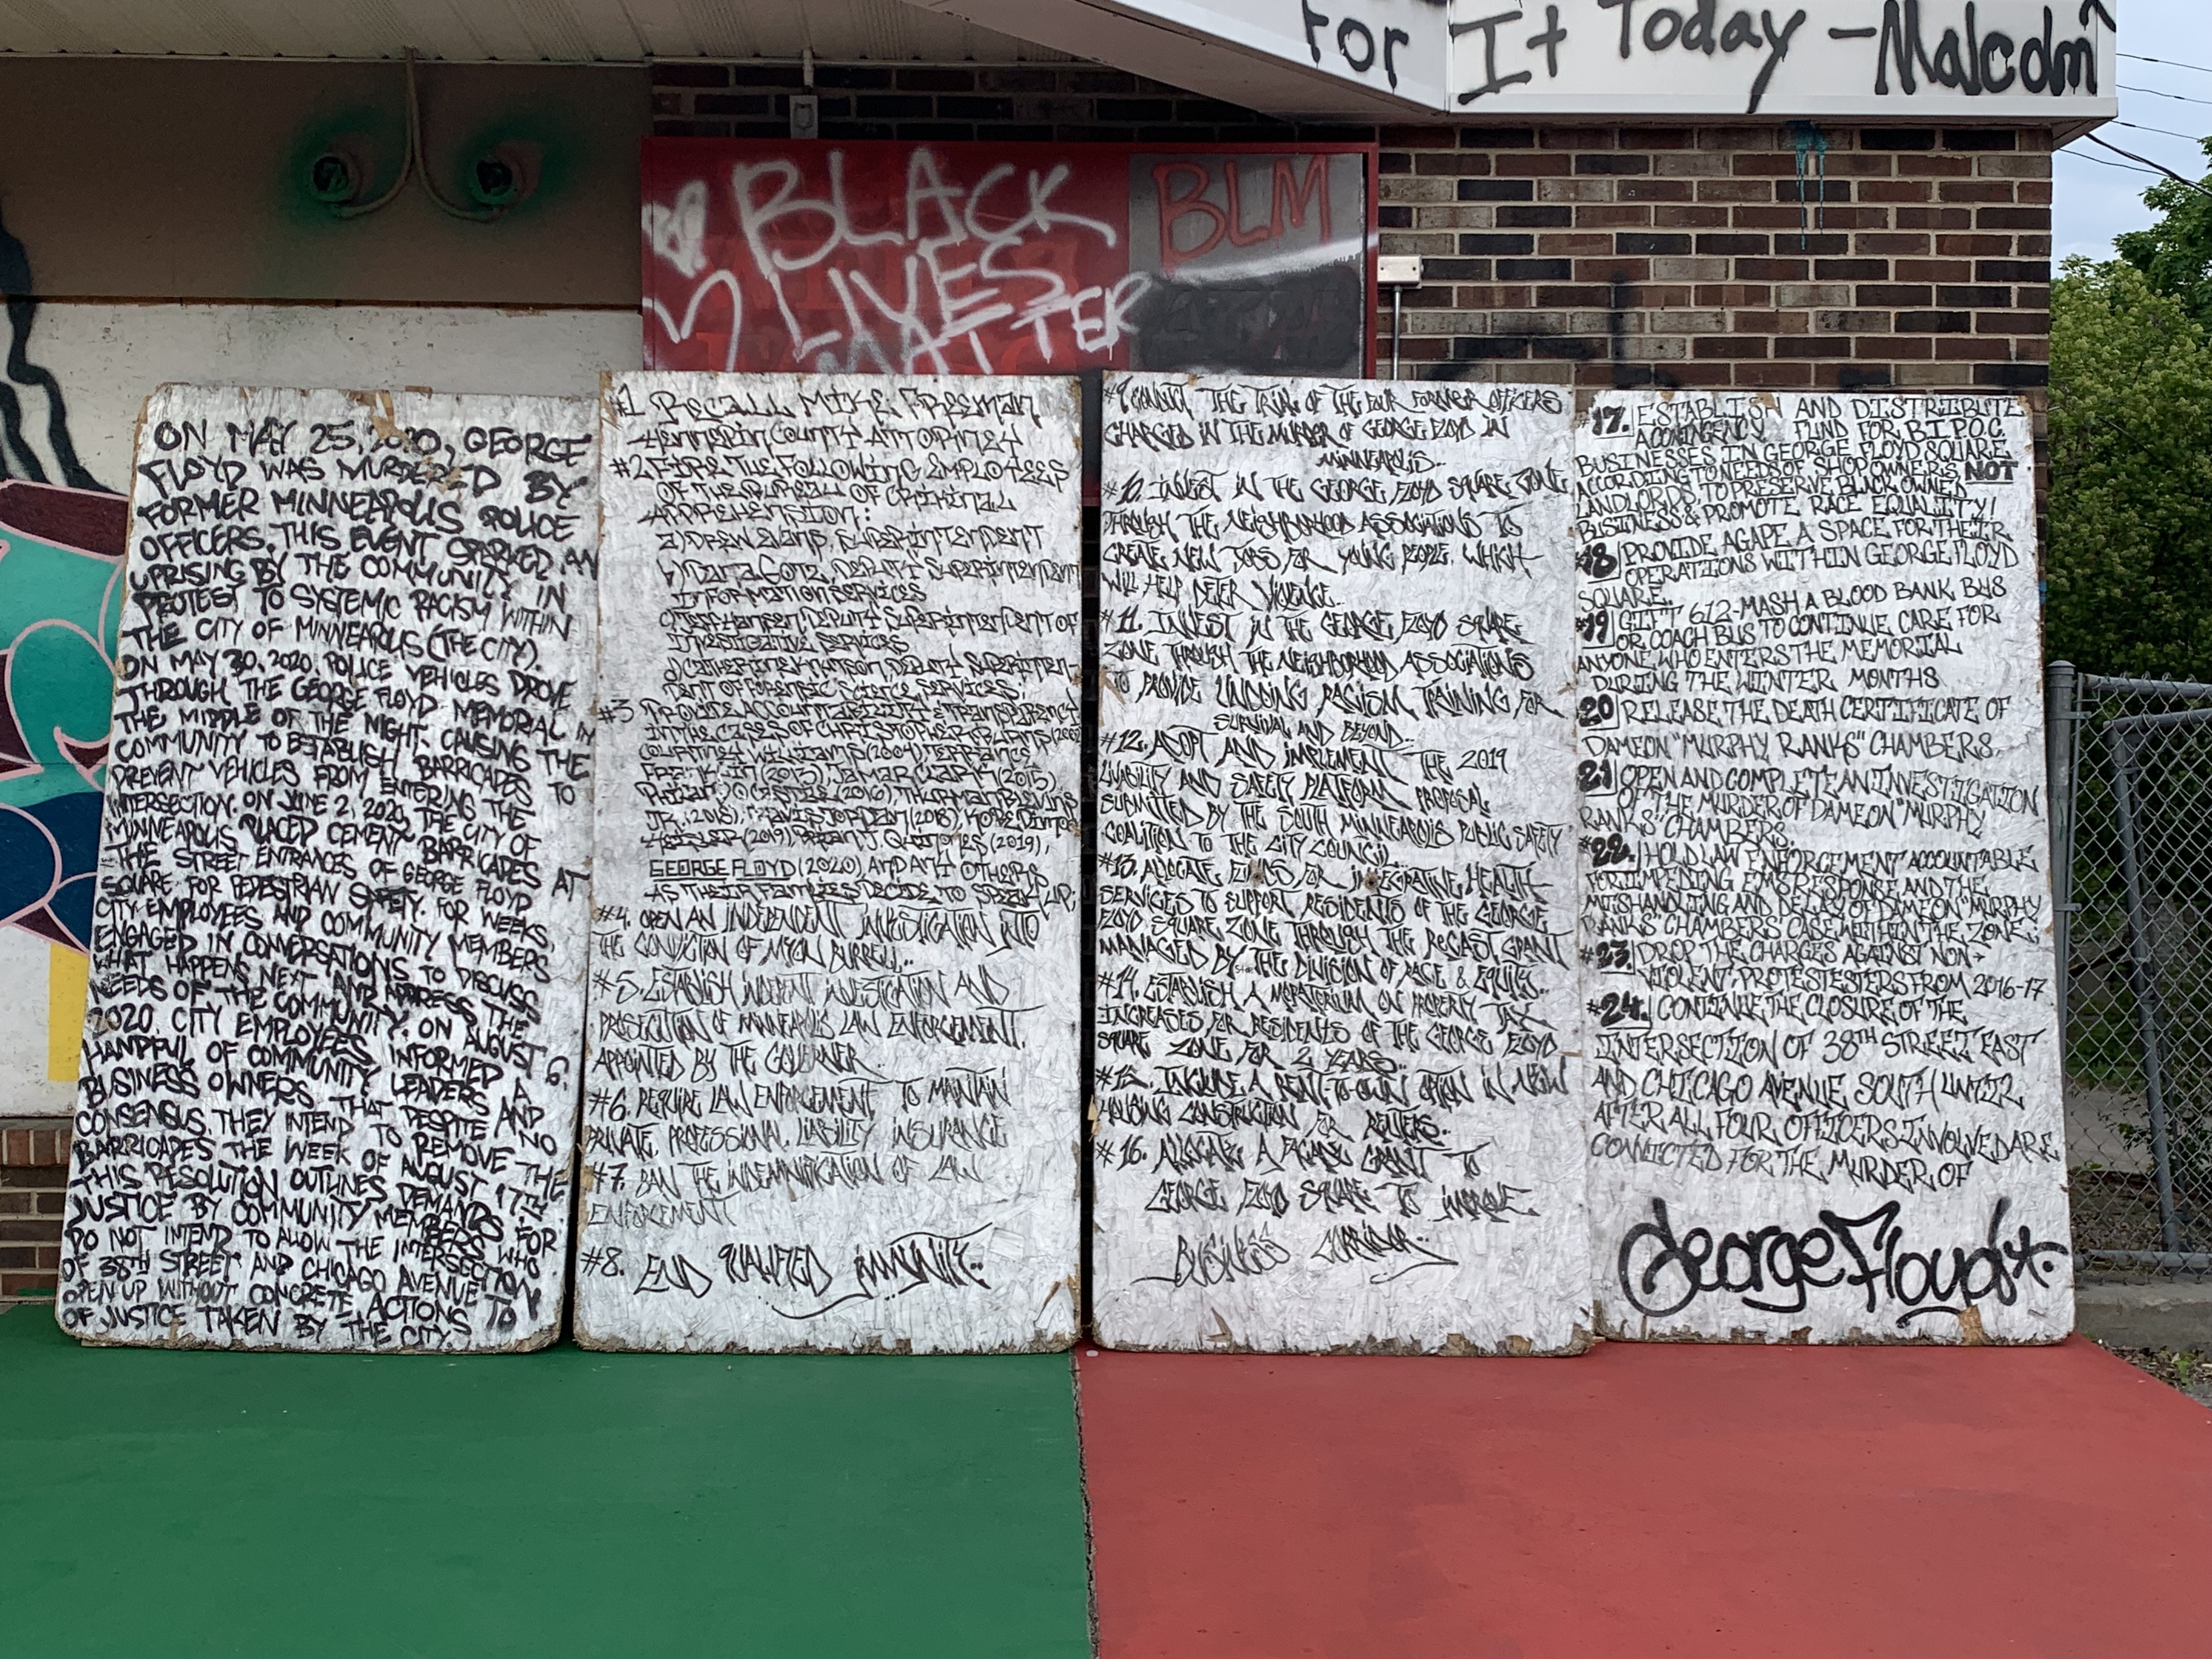 For
It Today -Malcolm
BLACK
LIVES
MATTER
BLM
ON MAY 25, 2020, GEORGE
FLOYD WAS MURDERED BY
FORMER MINNEAPOLIS POLICE
OFFICERS. THIS EVENT SPARKED AN
UPRISING BY THE COMMUNITY IN
PROTEST TO SYSTEMIC RACISM WITHIN
THE CITY OF MINNEAPOLIS (THE CITY).
ON MAY 30, 2020, POLICE VEHICLES DROVE
THROUGH THE GEORGE FLOYD MEMORIAL IN
THE MIDDLE OF THE NIGHT, CAUSING THE
COMMUNITY TO ESTABLISH BARRICADES TO
PREVENT VEHICLES FROM ENTERING THE
INTERSECTION. ON JUNE 2, 2020, THE CITY OF
MINNEAPOLIS PLACED CEMENT BARRICADES AT
THE STREET ENTRANCES OF GEORGE FLOYD
SQUARE FOR PEDESTRIAN SAFETY. FOR WEEKS,
CITY EMPLOYEES AND COMMUNITY MEMBERS
ENGAGED IN CONVERSATIONS TO DISCUSS
WHAT HAPPENS NEXT AND ADDRESS THE
NEEDS OF THE COMMUNITY. ON AUGUST 6,
2020, CITY EMPLOYEES INFORMED A
HANDFUL OF COMMUNITY LEADERS AND
BUSINESS OWNERS THAT DESPITE NO
CONSENSUS, THEY INTEND TO REMOVE THE
BARRICADES THE WEEK OF AUGUST 17TH.
THIS RESOLUTION OUTLINES DEMANDS FOR
JUSTICE BY COMMUNITY MEMBERS WHO
DO NOT INTEND TO ALLOW THE INTERSECTION
OF 38TH STREET AND CHICAGO AVENUE TO
OPEN UP WITHOUT CONCRETE ACTIONS
OF JUSTICE TAKEN BY THE CITY.
#1 RECALL MIKE FREEMAN
HENNEPIN COUNTY ATTORNEY
#2 FIRE THE FOLLOWING EMPLOYEES
OF THE BUREAU OF CRIMINAL
APPREHENSION:
a) DREW EVANS, SUPERINTENDENT
b) DANA GOTZ, DEPUTY SUPERINTENDENT
INFORMATION SERVICES
c) JEFF HANSEN DEPUTY SUPERINTENDENT OF
INVESTIGATIVE SERVICES
d) CATHERINE KNUTSON, DEPUTY SUPERINTEN-
DENT OF FORENSIC SCIENCE SERVICES.
#3 PROVIDE ACCOUNTABILITY & TRANSPARENCY
IN THE CASES OF CHRISTOPHER BURNS (2002)
COURTNEY WILLIAMS (2004), TERRANCE
FRANKLIN (2013), JAMAR CLARK (2015),
PHILANDO CASTILE (2016), THURMAN BLEVINS
JR. (2018), TRAVIS JORDAN (2018), KOBE DIMOCK
HEISLER (2019), BRIAN J. QUINONES (2019),
GEORGE FLOYD (2020), AND ANY OTHERS
AS THEIR FAMILIES DECIDE TO SPEAK UP;
#4. OPEN AN INDEPENDENT INVESTIGATION INTO
THE CONVICTION OF MYON BURRELL..
#5. ESTABLISH INDEPENT INVESTIGATION AND
PROSECUTION OF MINNEAPOLIS LAW ENFORCEMENT,
APPOINTED BY THE GOVERNOR..
#6. REQUIRE LAW ENFORCEMENT TO MAINTAIN
PRIVATE, PROFESSIONAL LIABILITY INSURANCE
#7. BAN THE INDEMNIFICATION OF LAW
ENFORCEMENT
#8. END QUALIFIED IMMUNITY..
#9 CONDUCT THE TRIAL OF THE FOUR FORMER OFFICERS
CHARGED IN THE MURDER OF GEORGE FLOYD IN
MINNEAPOLIS..
#10. INVEST IN THE GEORGE FLOYD SQUARE ZONE
THROUGH THE NEIGHBORHOOD ASSOCIATIONS TO
CREATE NEW JOBS FOR YOUNG PEOPLE, WHICH
WILL HELP DETER VIOLENCE..
#11. INVEST IN THE GEORGE FLOYD SQUARE
ZONE THROUGH THE NEIGHBORHOOD ASSOCIATIONS
TO PROVIDE UNDOING RACISM TRAINING FOR
SURVIVAL AND BEYOND..
#12. ADOPT AND IMPLEMENT THE 2019
LIVABILITY AND SAFETY PLATFORM PROPOSAL
SUBMITTED BY THE SOUTH MINNEAPOLIS PUBLIC SAFETY
COALITION TO THE CITY COUNCIL..
#13. ALLOCATE FUNDS FOR INTEGRATIVE HEALTH
SERVICES TO SUPPORT RESIDENTS OF THE GEORGE
FLOYD SQUARE ZONE THROUGH THE ReCAST GRANT
MANAGED BY THE DIVISION OF RACE & EQUITY..
#14. ESTABLISH A MORATORIUM ON PROPERTY TAX
INCREASES FOR RESIDENTS OF THE GEORGE FLOYD
SQUARE ZONE FOR 2 YEARS..
#15. INCLUDE A RENT-TO-OWN OPTION IN NEW
HOUSING CONSTRUCTION FOR RENTERS..
#16. ALLOCATE A FACADE GRANT TO
GEORGE FLOYD SQUARE TO IMPROVE
BUSINESS CORRIDOR..
#17. ESTABLISH AND DISTRIBUTE
A CONTINGENCY FUND FOR B.I.P.O.C.
BUSINESSES IN GEORGE FLOYD SQUARE
ACCORDING TO NEEDS OF SHOP OWNERS NOT
LANDLORDS, TO PRESERVE BLACK OWNED
BUSINESS & PROMOTE RACE EQUALITY!
#18 PROVIDE AGAPE A SPACE FOR THEIR
OPERATIONS WITHIN GEORGE FLOYD
SQUARE.
#19 GIFT 612-MASH A BLOOD BANK BUS
OR COACH BUS TO CONTINUE CARE FOR
ANYONE WHO ENTERS THE MEMORIAL
DURING THE WINTER MONTHS
20 RELEASE THE DEATH CERTIFICATE OF
DAMEON "MURPHY RANKS" CHAMBERS.
21 OPEN AND COMPLETE AN INVESTIGATION
OF THE MURDER OF DAMEON "MURPHY
RANKS" CHAMBERS.
#22. HOLD LAW ENFORCEMENT ACCOUNTABLE
FOR IMPEDING EMS RESPONSE AND THE
MISHANDLING AND DELAY OF DAMEON "MURPHY
RANKS" CHAMBERS CASE WITHIN THE ZONE;
#23 DROP THE CHARGES AGAINST NON-
VIOLENT PROTESTESTERS FROM 2016-17
#24. CONTINUE THE CLOSURE OF THE
INTERSECTION OF 38TH STREET EAST
AND CHICAGO AVENUE SOUTH UNTIL
AFTER ALL FOUR OFFICERS INVOLVED ARE
CONVICTED FOR THE MURDER OF
George Floyd